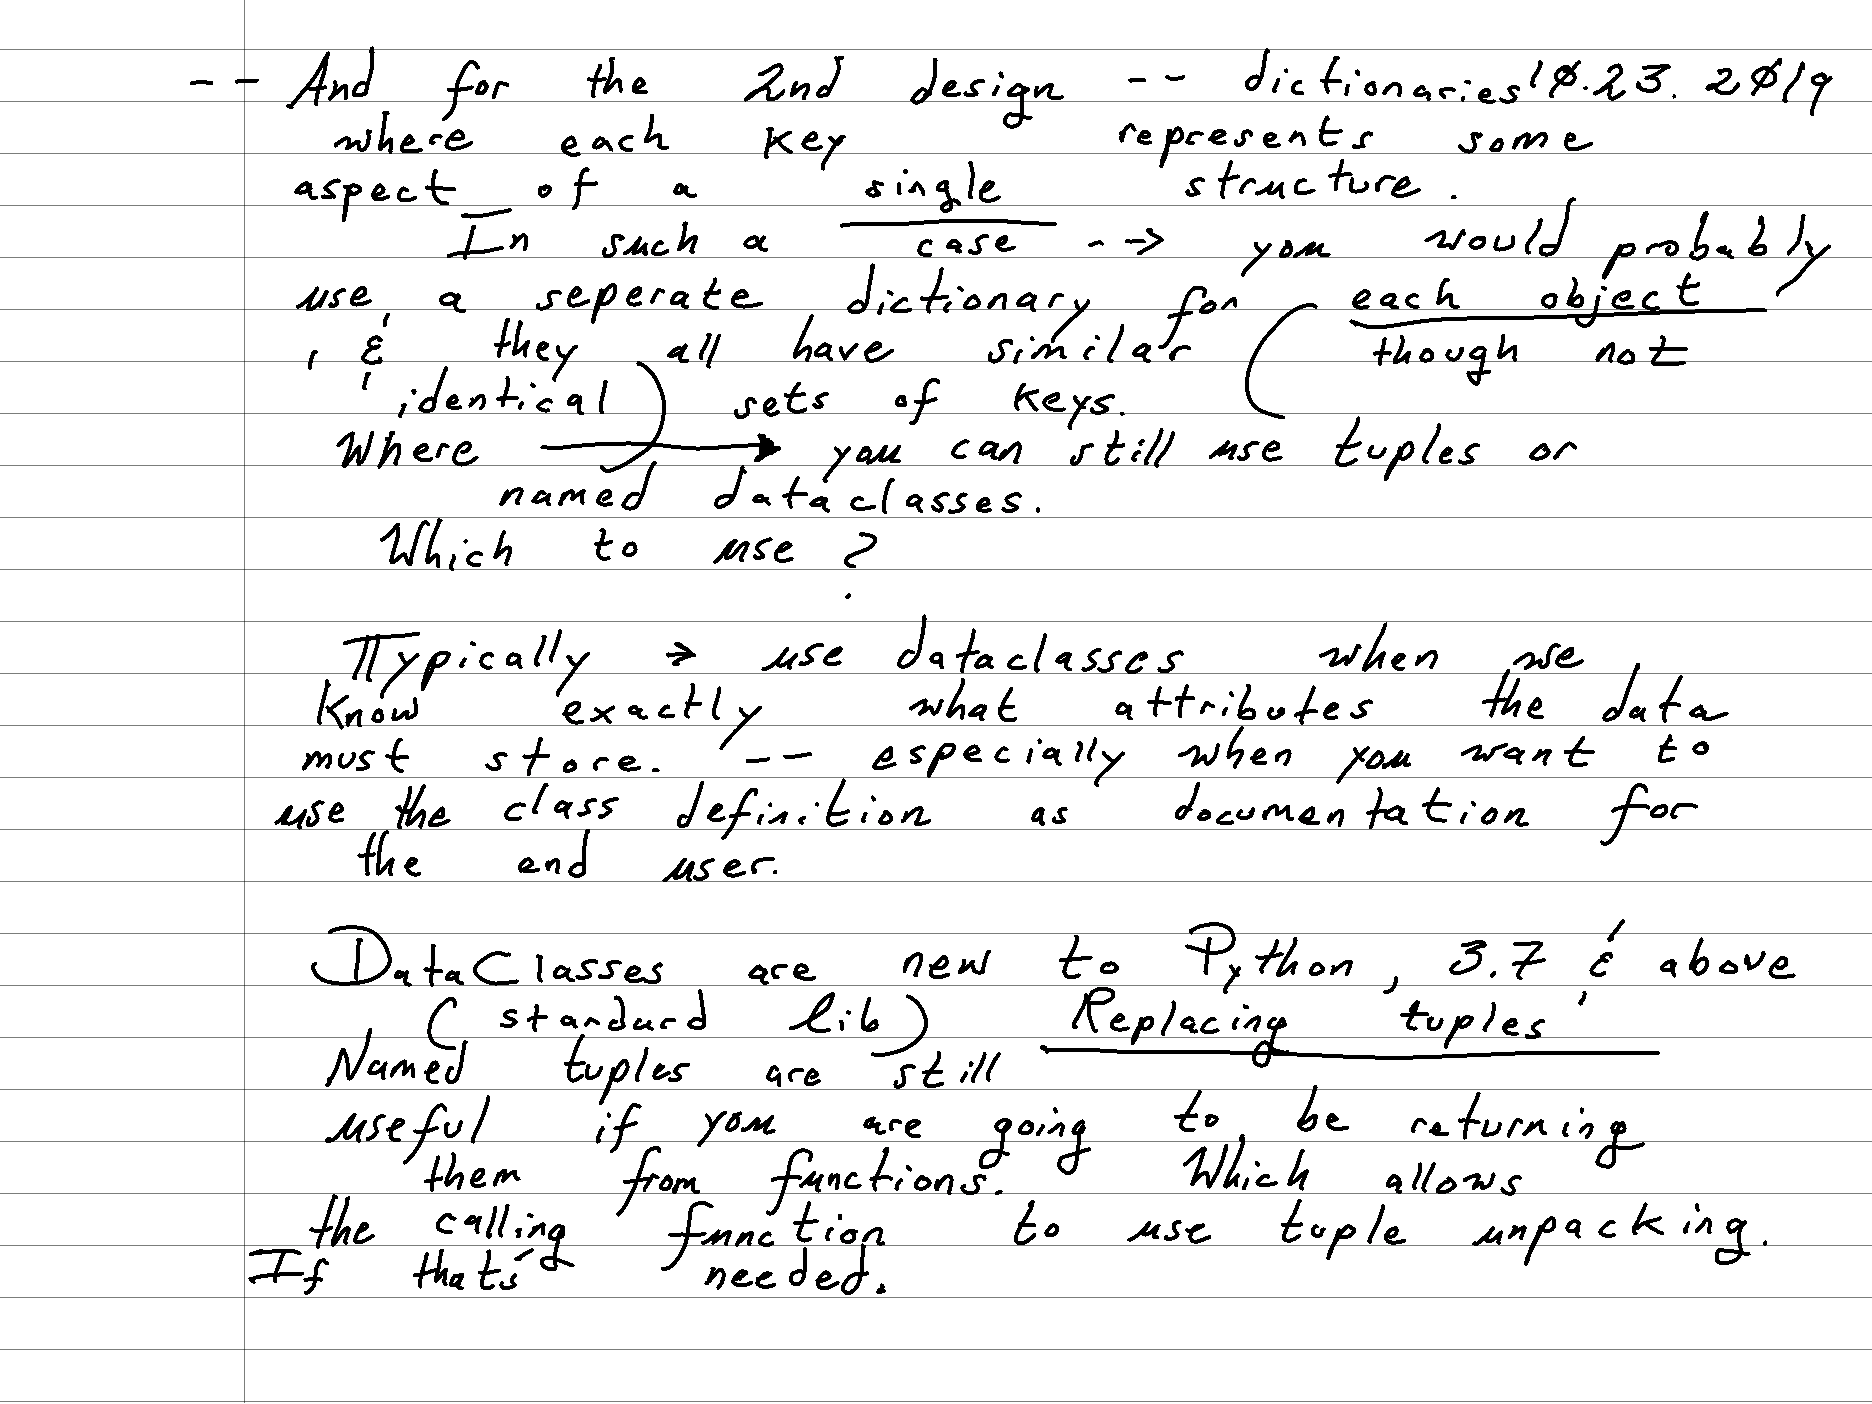 -- And for the 2nd design -- dictionaries 10.23.2019
where each key represents some
aspect of a single structure.
In such a case --> you would probably
use a seperate dictionary for each object
, & they all have similar (though not
identical) sets of keys.
Where → you can still use tuples or
named dataclasses.
Which to use?
Typically → use dataclasses when we
know exactly what attributes the data
must store. -- especially when you want to
use the class definition as documentation for
the end user.
DataClasses are new to Python, 3.7 & above
(standard lib) Replacing tuples
Named tuples are still
useful if you are going to be returning
them from functions. Which allows
the calling function to use tuple unpacking.
If that's needed.